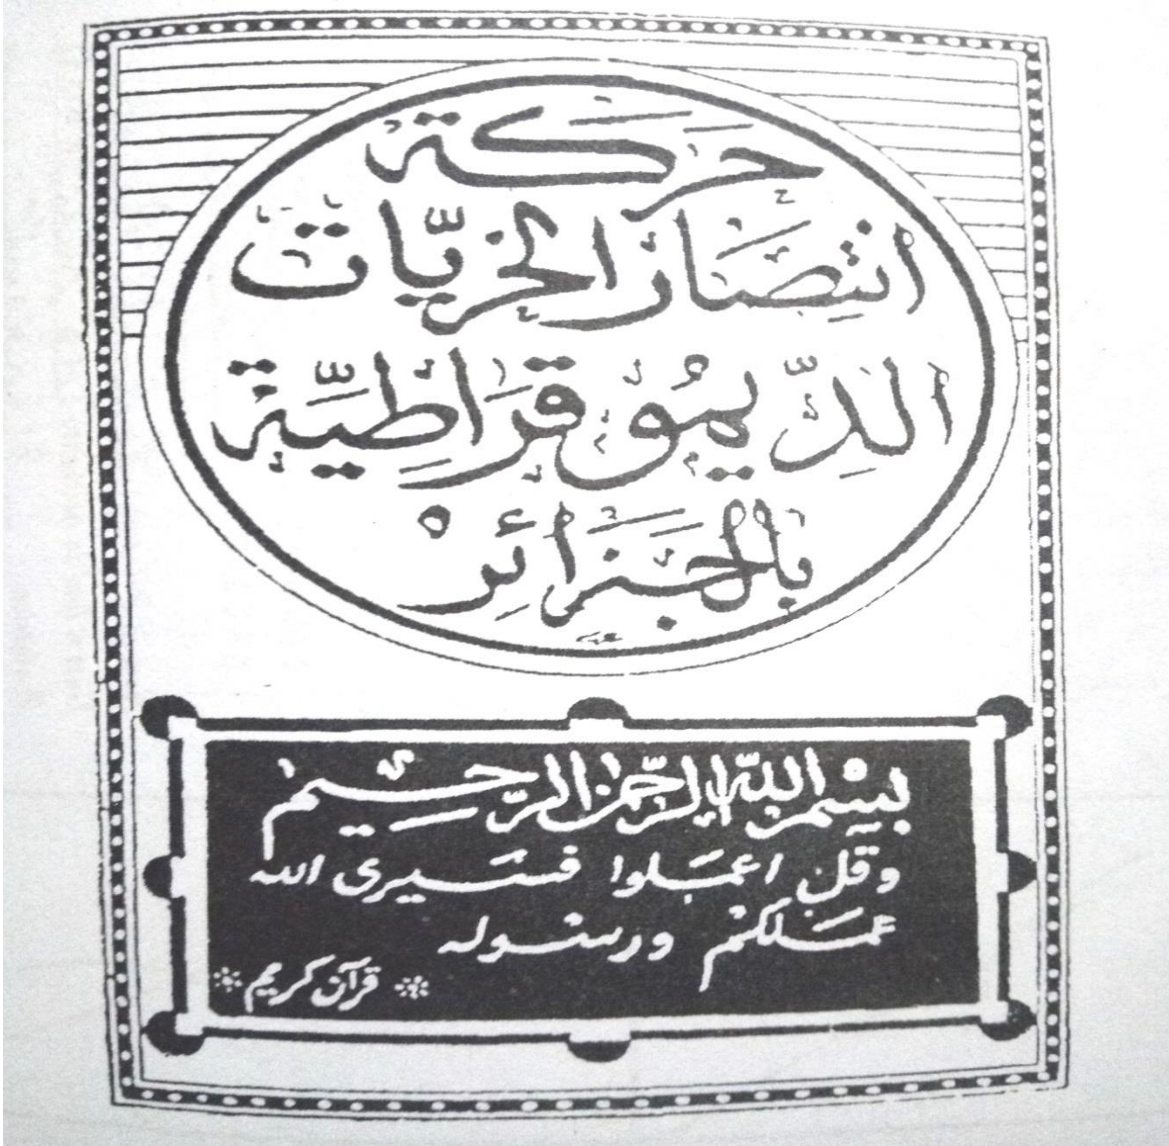 حَرَكَة
انتِصَار الحُرِّيَات
الدِّيمُوقرَاطِيَّة
بالجَزَائِرْ
بِسْمِ اللهِ الرَّحمنِ الرَّحِيم
وقل اعمَلوا فسَيرى الله
عمَلكمْ ورسوله
* قرآن كريم *